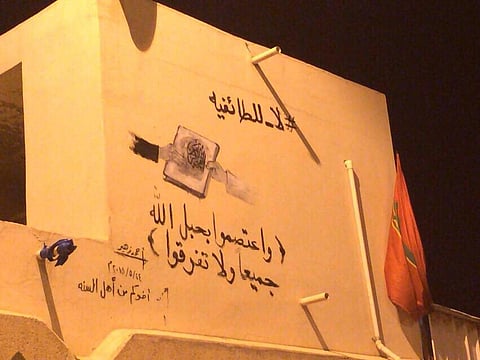 #لا_للطائفيه
(واعتصموا بحبل الله
جميعا ولا تفرقوا)
٢٠١٥/٥/٢٤م
اخوكم من أهل السنه